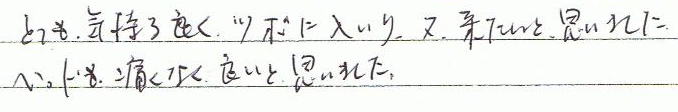 とても、気持ち良く、ツボに入いり、又、来たいと、思いました
い。とても、痛くなく、良いと、思いました。